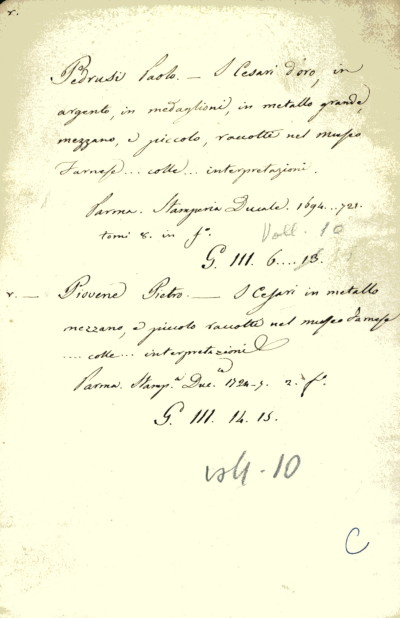 v.
Pedrusi Paolo. — I Cesari d'oro, in
argento, in medaglioni, in metallo grande,
mezzano, e piccolo, raccolti nel museo
Farnese... colle... interpretazioni.
Parma. Stamperia Ducale. 1694...721.
tomi 8. in f.º Voll. 10
G. III. 6....13.
v. — Piovene Pietro. — I Cesari in metallo
mezzano, e piccolo raccolti nel museo Farnese
.... colle... interpretazioni
Parma. Stamp.ª Duc.ª 1724-7. 2. f.º
G. III. 14. 15.
voll. 10
C